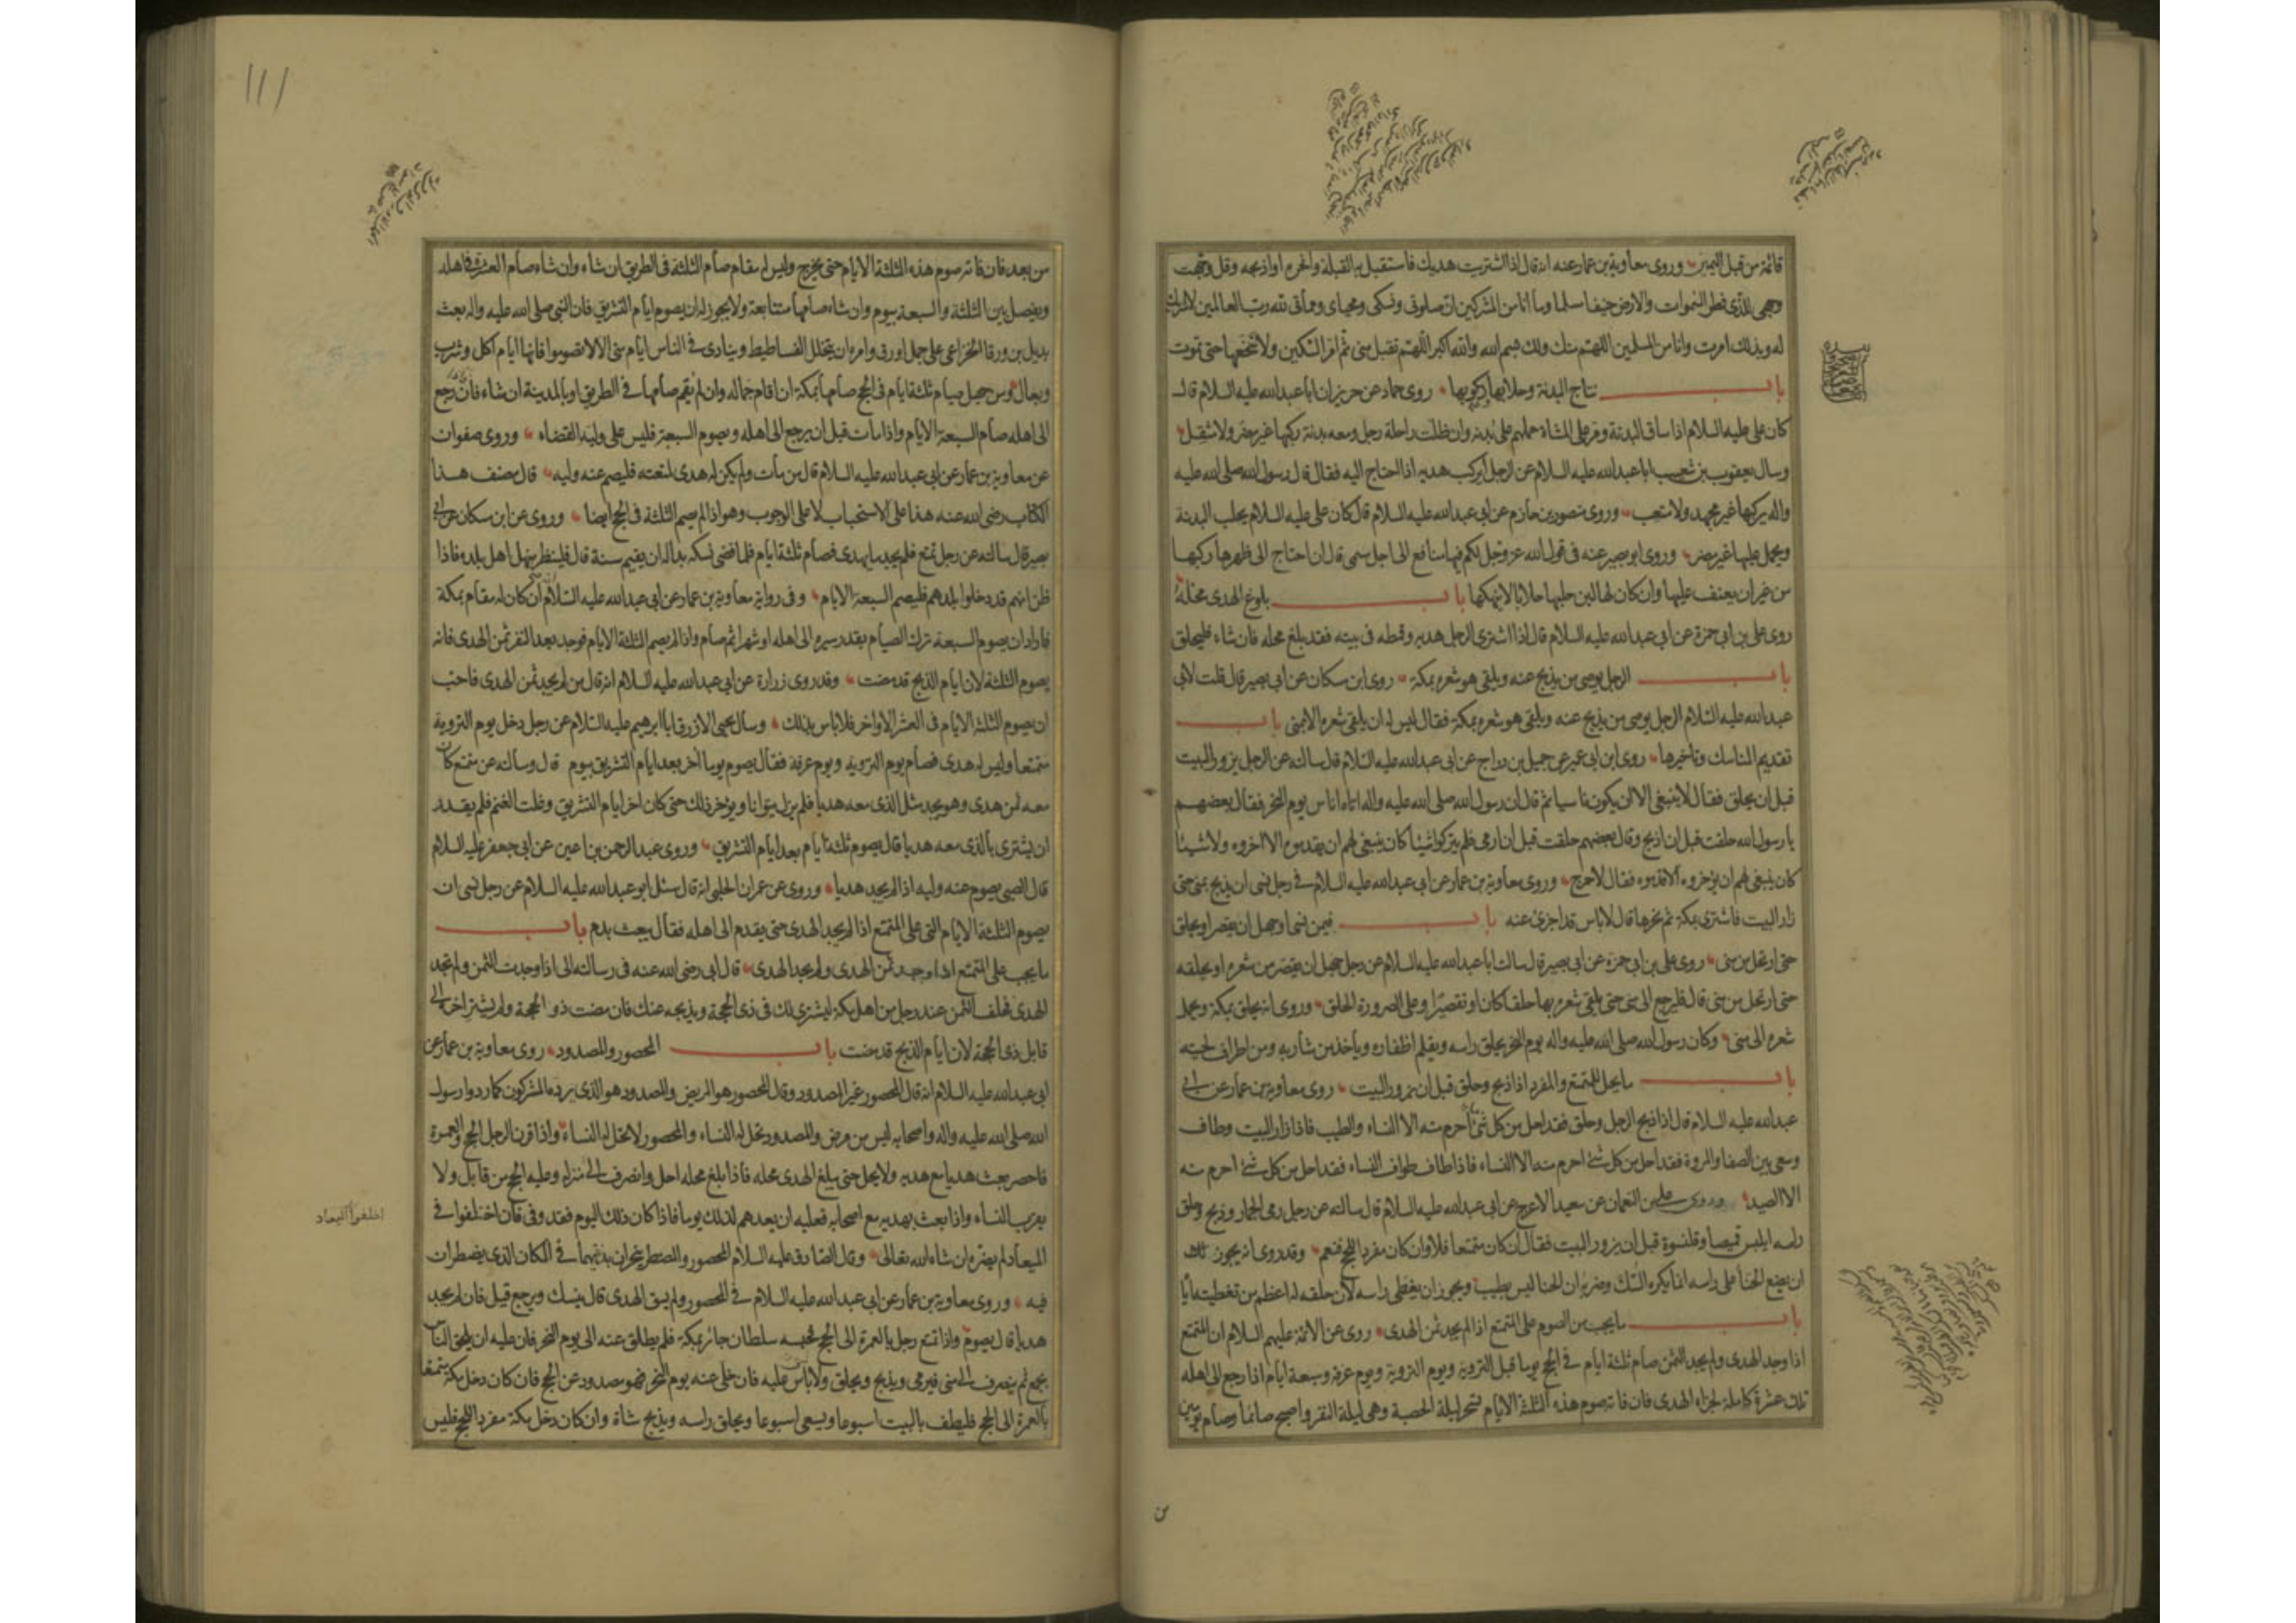 قائمة من قبل اليمين وروى معاوية بن عمار عنه انه قال اذا اشتريت هديك فاستقبل به القبلة وانحره او اذبحه وقل وجهت
وجهى للذى فطر السموات والارض حنيفا مسلما وما انا من المشركين ان صلوتى ونسكى ومحياى ومماتى لله رب العالمين لا شريك
له وبذلك امرت وانا من المسلمين اللهم منك ولك بسم الله والله اكبر اللهم تقبل منى ثم امر السكين ولا تنخعها حتى تموت
باب نتاج البدنة وحلابها وركوبها روى حماد عن حريز ان ابا عبدالله عليه السلام قال
كان على عليه السلام اذا ساق البدنة ومر على المشاة حملهم على بدنه وان ظلت راحلة رجل ومعه بدنة ركبها غير مضر ولا مثقل
وسال يعقوب بن شعيب ابا عبدالله عليه السلام عن الرجل يركب هديه اذا احتاج اليه فقال قال رسول الله صلى الله عليه
واله يركبها غير مجهد ولا متعب وروى منصور بن حازم عن ابى عبدالله عليه السلام قال كان على عليه السلام يحلب البدنة
ويحمل عليها غير مضر وروى ابو بصير عنه فى قول الله عز وجل لكم فيها منافع الى اجل مسمى قال ان احتاج الى ظهرها ركبها
من غير ان يعنف عليها وان كان لها لبن حلبها حلابا لا ينهكها باب بلوغ الهدى محله
روى على بن ابى حمزة عن ابى عبدالله عليه السلام قال اذا اشترى الرجل هديه وقمطه فى بيته فقد بلغ محله فان شاء فليحلق
باب الرجل يوصى من يذبح عنه ويلقى هو شعره بمكة روى ابن مسكان عن ابى بصير قال قلت لابى
عبدالله عليه السلام الرجل يوصى من يذبح عنه ويلقى هو شعره بمكة فقال ليس له ان يلقى شعره الا بمنى باب
تقديم المناسك وتاخيرها روى ابن ابى عمير عن جميل بن دراج عن ابى عبدالله عليه السلام قال سالته عن الرجل يزور البيت
قبل ان يحلق فقال لا ينبغى الا ان يكون ناسيا ثم قال ان رسول الله صلى الله عليه واله اتاه اناس يوم النحر فقال بعضهم
يا رسول الله حلقت قبل ان اذبح وقال بعضهم حلقت قبل ان ارمى فلم يتركوا شيئا كان ينبغى لهم ان يقدموه الا اخروه ولا شيئا
كان ينبغى لهم ان يؤخروه الا قدموه فقال لا حرج وروى معاوية بن عمار عن ابى عبدالله عليه السلام فى رجل نسى ان يذبح بمنى حتى
زار البيت فاشترى بمكة ثم نحرها قال لا باس قد اجزى عنه باب فيمن نسى او جهل ان يقصر او يحلق
حتى ارتحل من منى روى على بن ابى حمزة عن ابى بصير قال سالت ابا عبدالله عليه السلام عن رجل جهل ان يقصر من شعره او يحلقه
حتى ارتحل من منى قال فليرجع الى منى حتى يلقى شعره بها حلقا كان او تقصيرا وعلى الصرورة الحلق وروى انه يحلق بمكة ويحمل
شعره الى منى وكان رسول الله صلى الله عليه واله يوم النحر يحلق راسه ويقلم اظفاره وياخذ من شاربه ومن اطراف لحيته
باب ما يحل للمتمتع والمفرد اذا ذبح وحلق قبل ان يزور البيت روى معاوية بن عمار عن ابى
عبدالله عليه السلام قال اذا ذبح الرجل وحلق فقد احل من كل شئ احرم منه الا النساء والطيب فاذا زار البيت وطاف
وسعى بين الصفا والمروة فقد احل من كل شئ احرم منه الا النساء فاذا طاف طواف النساء فقد احل من كل شئ احرم منه
الا الصيد وروى على بن النعمان عن سعيد الاعرج عن ابى عبدالله عليه السلام قال سالته عن رجل رمى الجمار وذبح وحلق
راسه ايلبس قميصا وقلنسوة قبل ان يزور البيت فقال ان كان متمتعا فلا وان كان مفردا للحج فنعم وقد روى انه يجوز له
ان يضع الحناء على راسه انما يكره السك وضربه ان الحنا ليس بطيب ويجوز ان يغطى راسه لان حلقه له اعظم من تغطيته اياه
باب ما يجب من الصوم على المتمتع اذا لم يجد ثمن الهدى روى عن الائمة عليهم السلام ان المتمتع
اذا وجد الهدى ولم يجد الثمن صام ثلثة ايام فى الحج يوما قبل التروية ويوم التروية ويوم عرفة وسبعة ايام اذا رجع الى اهله
تلك عشرة كاملة لجزاء الهدى فان فاته صوم هذه الثلثة الايام تسحر ليلة الحصبة وهى ليلة النفر واصبح صائما وصام يومين
من
من بعد فان فاته صوم هذه الثلثة الايام حتى يخرج وليس له مقام صام الثلثة فى الطريق ان شاء وان شاء صام العشرة فى اهله
ويفصل بين الثلثة والسبعة بيوم وان شاء صامها متتابعة ولا يجوز له ان يصوم ايام التشريق فان النبى صلى الله عليه واله بعث
بديل بن ورقا الخزاعى على جمل اورق وامره ان يتخلل الفساطيط وينادى فى الناس ايام منى الا لا تصوموا فانها ايام اكل وشرب
وبعال ومن جهل صيام ثلثة ايام فى الحج صامها بمكة ان اقام جماله وان لم يقم صامها فى الطريق او بالمدينة ان شاء فان رجع
الى اهله صام السبعة الايام واذا مات قبل ان يرجع الى اهله ويصوم السبعة فليس على وليه القضاء وروى صفوان
عن معاوية بن عمار عن ابى عبدالله عليه السلام قال من مات ولم يكن له هدى لمتعته فليصم عنه وليه قال مصنف هذا
الكتاب رضى الله عنه هذا على الاستحباب لا على الوجوب وهو اذا لم يصم الثلثة فى الحج ايضا وروى عن ابن مسكان عن ابى
بصير قال سالته عن رجل تمتع فلم يجد ما يهدى فصام ثلثة ايام فلما قضى نسكه بدا له ان يقيم سنة قال فلينظر منهل اهل بلده فاذا
ظن انهم قد دخلوا بلدهم فليصم السبعة الايام وفى رواية معاوية بن عمار عن ابى عبدالله عليه السلام انه ان كان له مقام بمكة
فاراد ان يصوم السبعة ترك الصيام بقدر سيره الى اهله او شهرا ثم صام واذا لم يصم الثلثة الايام فوجد بعد النفر ثمن الهدى فانه
يصوم الثلثة لان ايام الذبح قد مضت وقد روى زرارة عن ابى عبدالله عليه السلام انه قال من لم يجد ثمن الهدى فاحب
ان يصوم الثلثة الايام فى العشر الاواخر فلا باس بذلك وسال يحيى الازرق ابا ابرهيم عليه السلام عن رجل دخل يوم التروية
متمتعا وليس له هدى فصام يوم التروية ويوم عرفة فقال يصوم يوما اخر بعد ايام التشريق بيوم قال وسالته عن متمتع كان
معه ثمن هدى وهو يجد مثل الذى معه هديا فلم يزل يتوانا ويؤخر ذلك حتى كان اخر ايام التشريق وغلت الغنم فلم يقدر
ان يشترى بالذى معه هديا قال يصوم ثلثة ايام بعد ايام التشريق وروى عبد الرحمن بن اعين عن ابى جعفر عليه السلام
قال الصبى يصوم عنه وليه اذا لم يجد هديا وروى عن عمران الحلبى انه قال سئل ابو عبدالله عليه السلام عن رجل نسى ان
يصوم الثلثة الايام التى على المتمتع اذا لم يجد الهدى حتى يقدم الى اهله فقال يبعث بدم باب
ما يجب على المتمتع اذا وجد ثمن الهدى ولم يجد الهدى قال ابى رضى الله عنه فى رسالته الى اذا وجدت الثمن ولم تجد
الهدى فخلف الثمن عند رجل من اهل مكة ليشترى لك فى ذى الحجة ويذبحه عنك فان مضت ذو الحجة ولم يشتر اخره الى
قابل ذى الحجة لان ايام الذبح قد مضت باب المحصور والمصدود روى معاوية بن عمار عن
ابى عبدالله عليه السلام انه قال المحصور غير المصدود وقال المحصور هو المريض والمصدود هو الذى يرده المشركون كما ردوا رسول
الله صلى الله عليه واله واصحابه ليس من مرض والمصدود تحل له النساء والمحصور لا تحل له النساء واذا قرن الرجل الحج والعمرة
فاحصر بعث هديا مع هديه ولا يحل حتى يبلغ الهدى محله فاذا بلغ محله احل وانصرف الى منزله وعليه الحج من قابل ولا
يقرب النساء واذا بعث بهديه مع اصحابه فعليه ان يعدهم لذلك يوما فاذا كان ذلك اليوم فقد وفى فان اختلفوا فى
الميعاد لم يضره ان شاء الله تعالى وقال الصادق عليه السلام المحصور والمضطر ينحران بدنتهما فى المكان الذى يضطران
فيه وروى معاوية بن عمار عن ابى عبدالله عليه السلام فى المحصور ولم يسق الهدى قال ينسك ويرجع قيل فان لم يجد
هديا قال يصوم واذا تمتع رجل بالعمرة الى الحج فحبسه سلطان جائر بمكة فلم يطلق عنه الى يوم النحر فان عليه ان يلحق الناس
بجمع ثم ينصرف الى منى فيرمى ويذبح ويحلق ولا باس عليه فان خلى عنه يوم النحر فهو مصدود عن الحج فان كان دخل مكة متمتعا
بالعمرة الى الحج فليطف بالبيت اسبوعا ويسعى اسبوعا ويحلق راسه ويذبح شاة وان كان دخل مكة مفردا للحج فليس
اختلفوا الميعاد
111